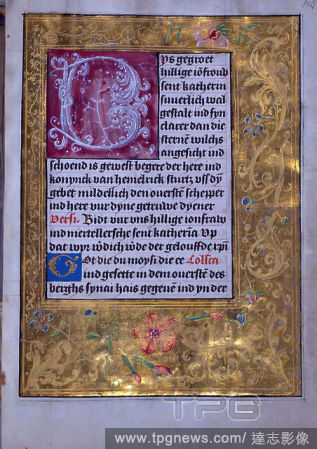 Bys gegroet
hillige iōfroud
sent katherin
suverlich wal
gestalt ind fyn
clarer dan die
sternē wilchs
angesicht ind
schoend is gewest begere der here ind
konynck van hemelrick sturtz uss dy
gebet mildelich den overstē schepper
ind here vur dyne getruwe dyener
Versi. Bidt vur vns hillige ionfrau
ind mertellersche sent katherīa vp
dat wyr wdich wde der geloufde xpī
Got die du moysi die ee Collcta
ind gesette in dem overstē des
berghs synai hais gegeuē ind yn der
TPG
www.tpgnews.com/ 達志影像